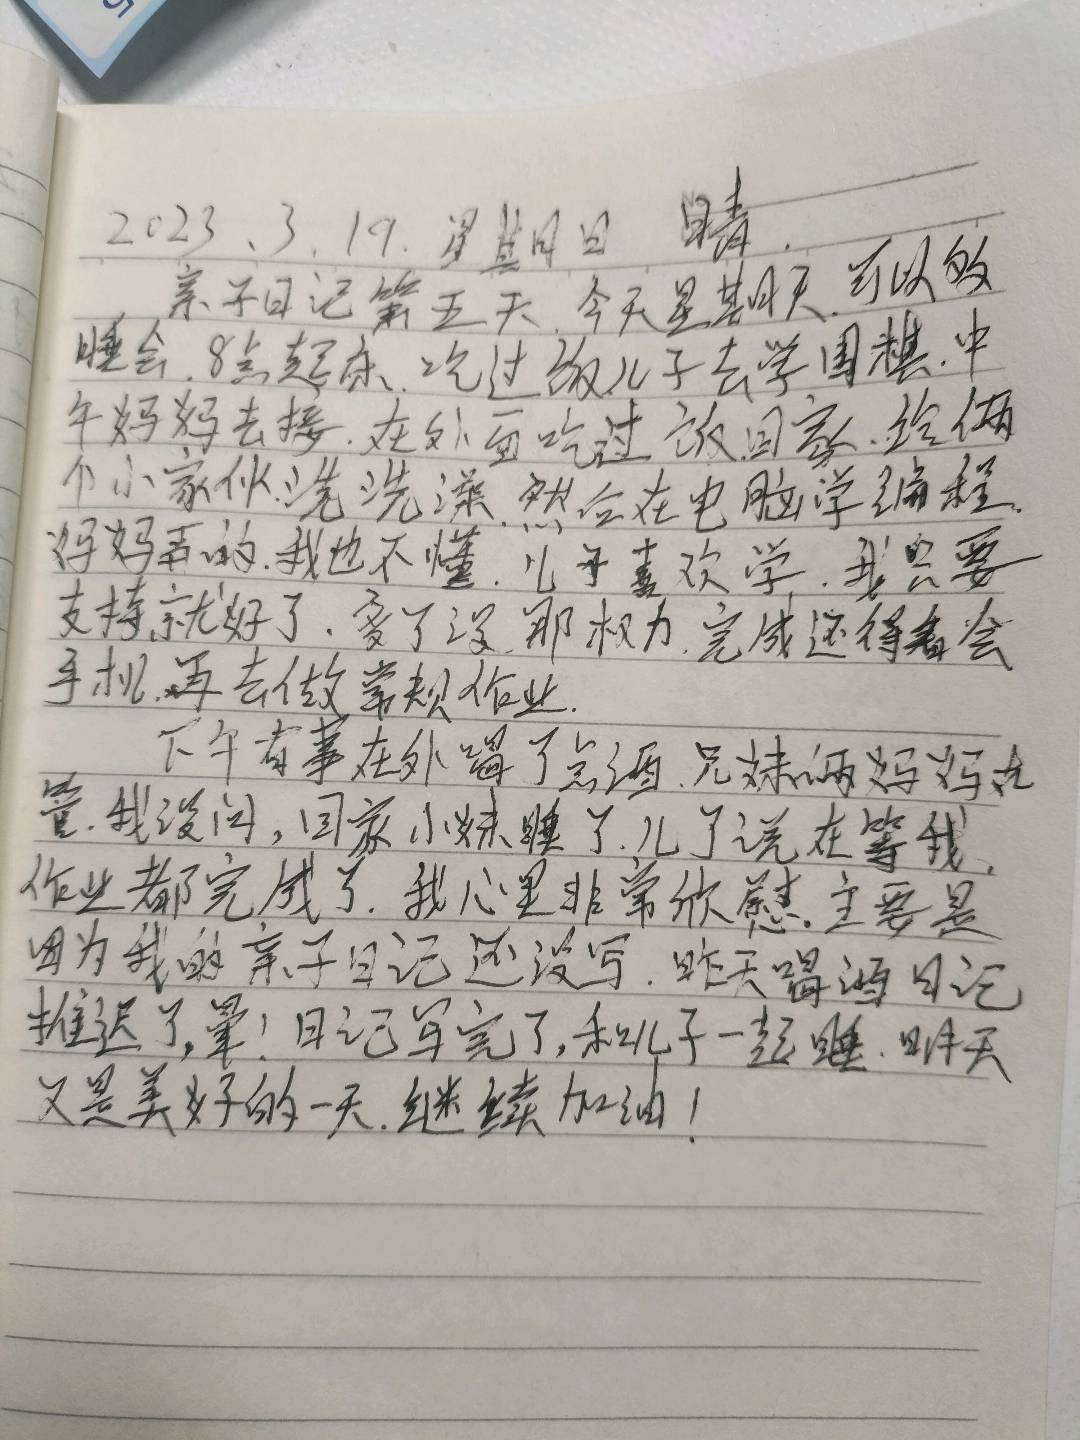 2023.3.19. 星期日 晴.
亲子日记第五天.今天星期天.可以多
睡会.8点起床.吃过饭儿子去学围棋.中
午妈妈去接.在外面吃过饭回家.给俩
个小家伙洗洗澡.然后在电脑学编程.
妈妈弄的.我也不懂.儿子喜欢学.我只要
支持就好了.多了没那权力.完成还得看会
手机.再去做常规作业.
下午有事在外喝了点酒.兄妹俩妈妈在
管.我没问,回家小妹睡了.儿子说在等我.
作业都完成了.我心里非常欣慰.主要是
因为我的亲子日记还没写.昨天喝酒日记
推迟了,晕!日记写完了,和儿子一起睡.明天
又是美好的一天.继续加油!